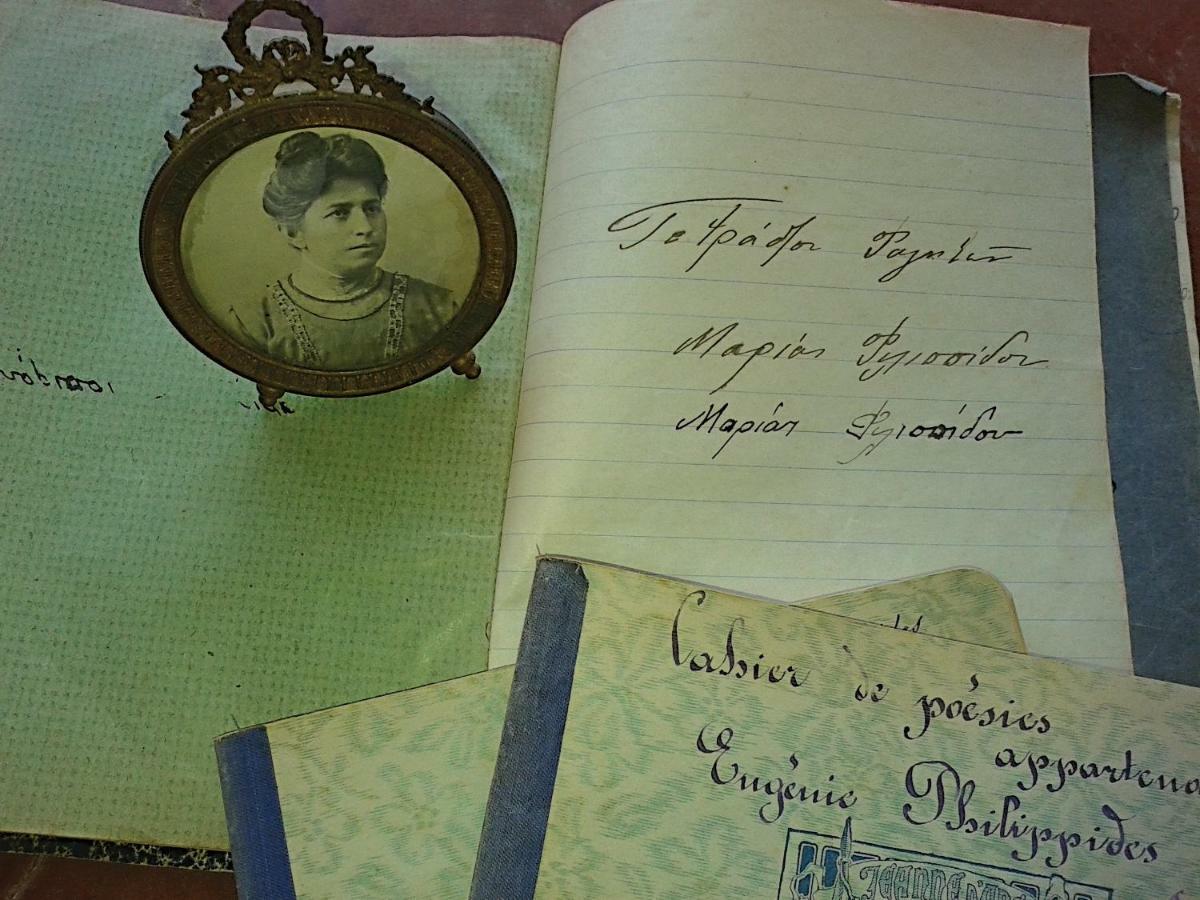 Τετράδιον Φαγητών
Μαρίας Φιλιππίδου
Μαρίας Φιλιππίδου
Cahier de poésies
appartena
Eugénie Philippides
JEANNE D'AR